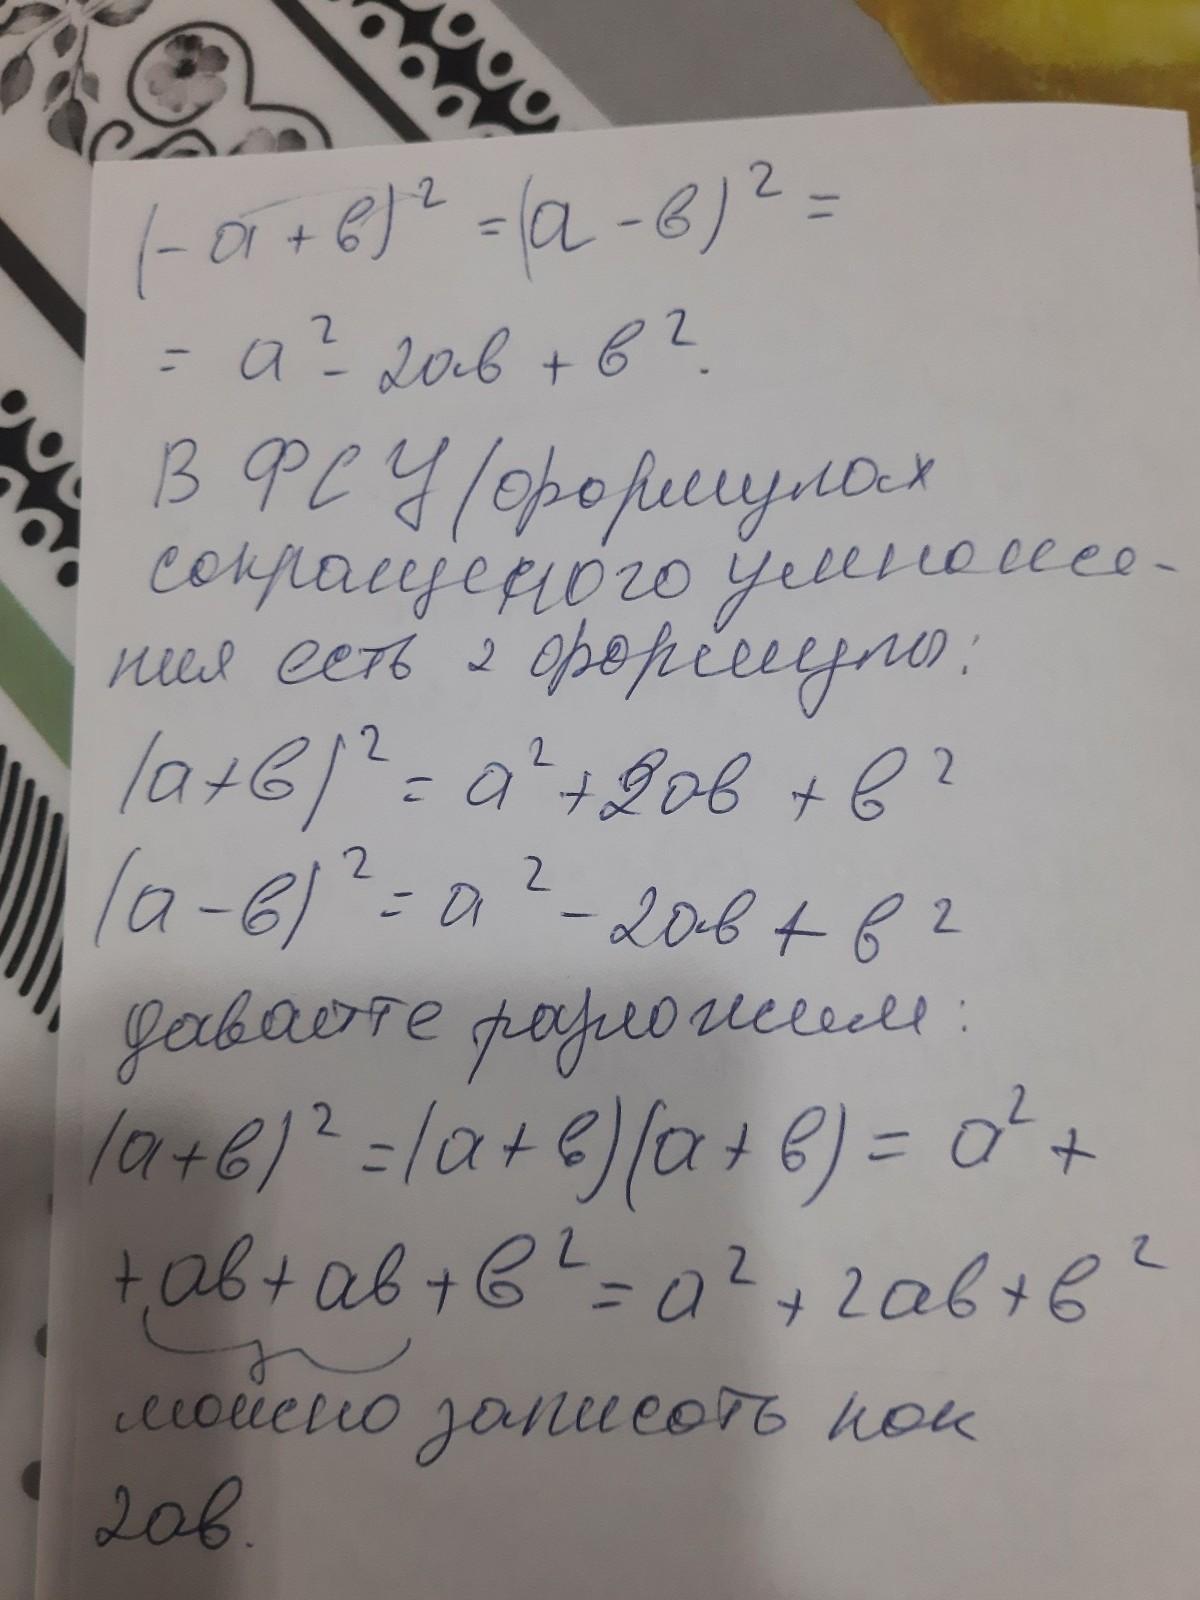 (-а+в)² =(а-в)² =
= а² - 2ав + в².
В ФСУ (формулах
сокращенного умноже-
ния есть 2 формулы:
(а+в)² = а² + 2ав + в²
(а-в)² = а² - 2ав + в²
давайте разложим:
(а+в)² =(а+в)(а+в) = а² +
+ав+ав+в² = а² + 2ав+в²
можно записать как
2ав.